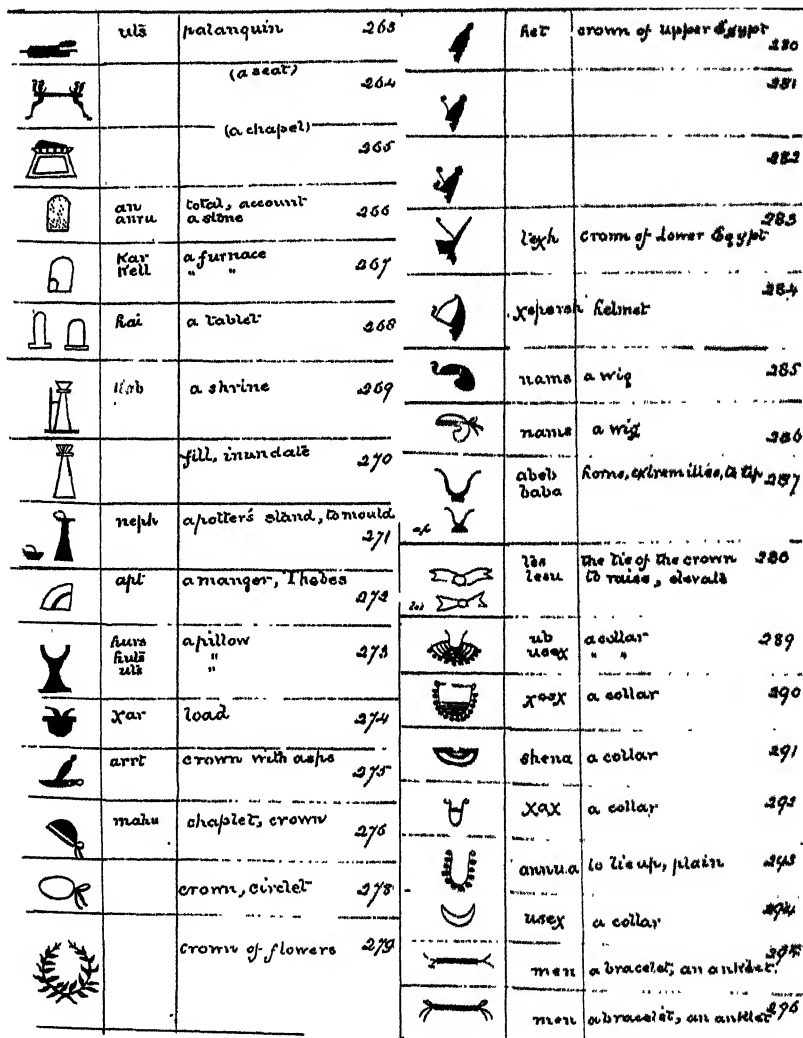 uts palanquin 263
(a seat) 264
(a chapel) 265
an total, account
anru a stone 266
Kar a furnace
Kell " " 267
hai a tablet 268
a shrine 269
fill, inundate 270
neph a potter's stand, to mould
271
apt a manger, Thebes
272
hurs a pillow
huts " 273
uts
xar load 274
arrt crown with asps
275
mahu chaplet, crown
276
crown, circlet 278
crown of flowers 279
het crown of Upper Egypt
280
281
282
283
texh crown of Lower Egypt
284
xepersh helmet
nams a wig 285
nams a wig 286
abeb horns, extremities, to tip 287
baba
tes the tie of the crown 288
tesu to raise, elevate
tes
ub a collar 289
usex " "
xax a collar 290
shena a collar 291
xax a collar 292
annu.a to tie up, plain 293
usex a collar 294
men a bracelet, an anklet.
men a bracelet, an anklet 296